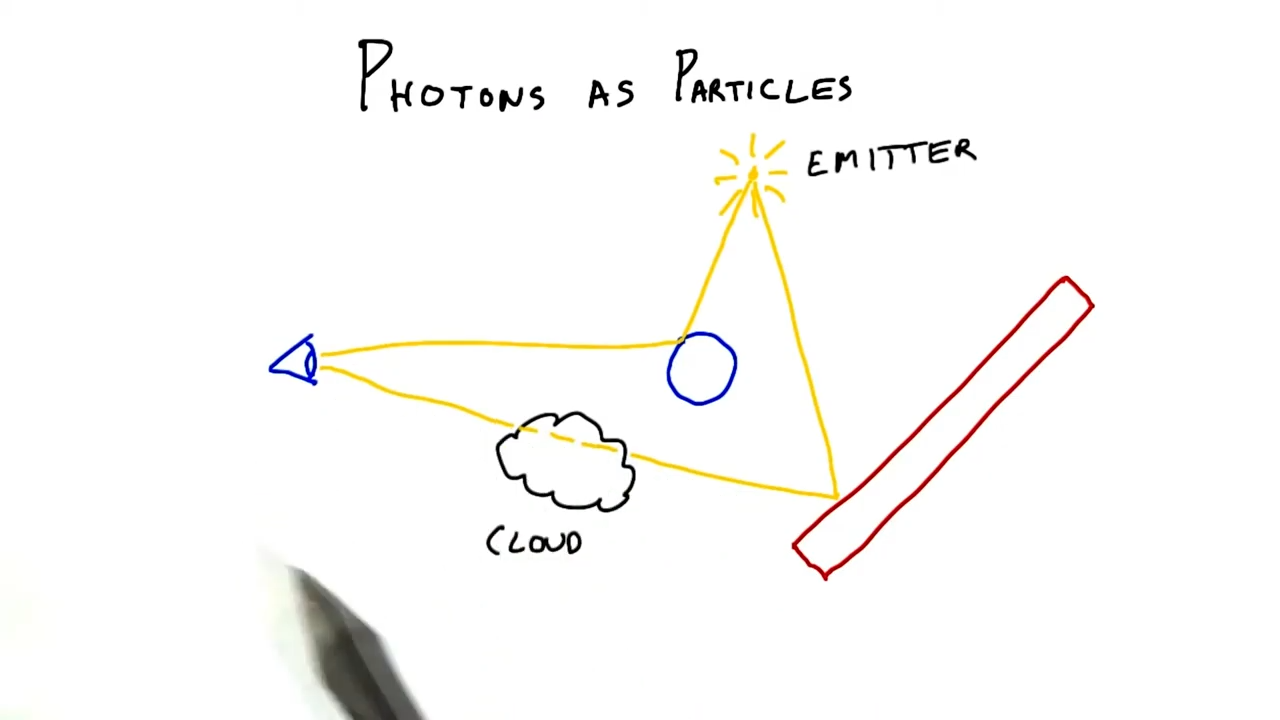 PHOTONS AS PARTICLES
EMITTER
CLOUD